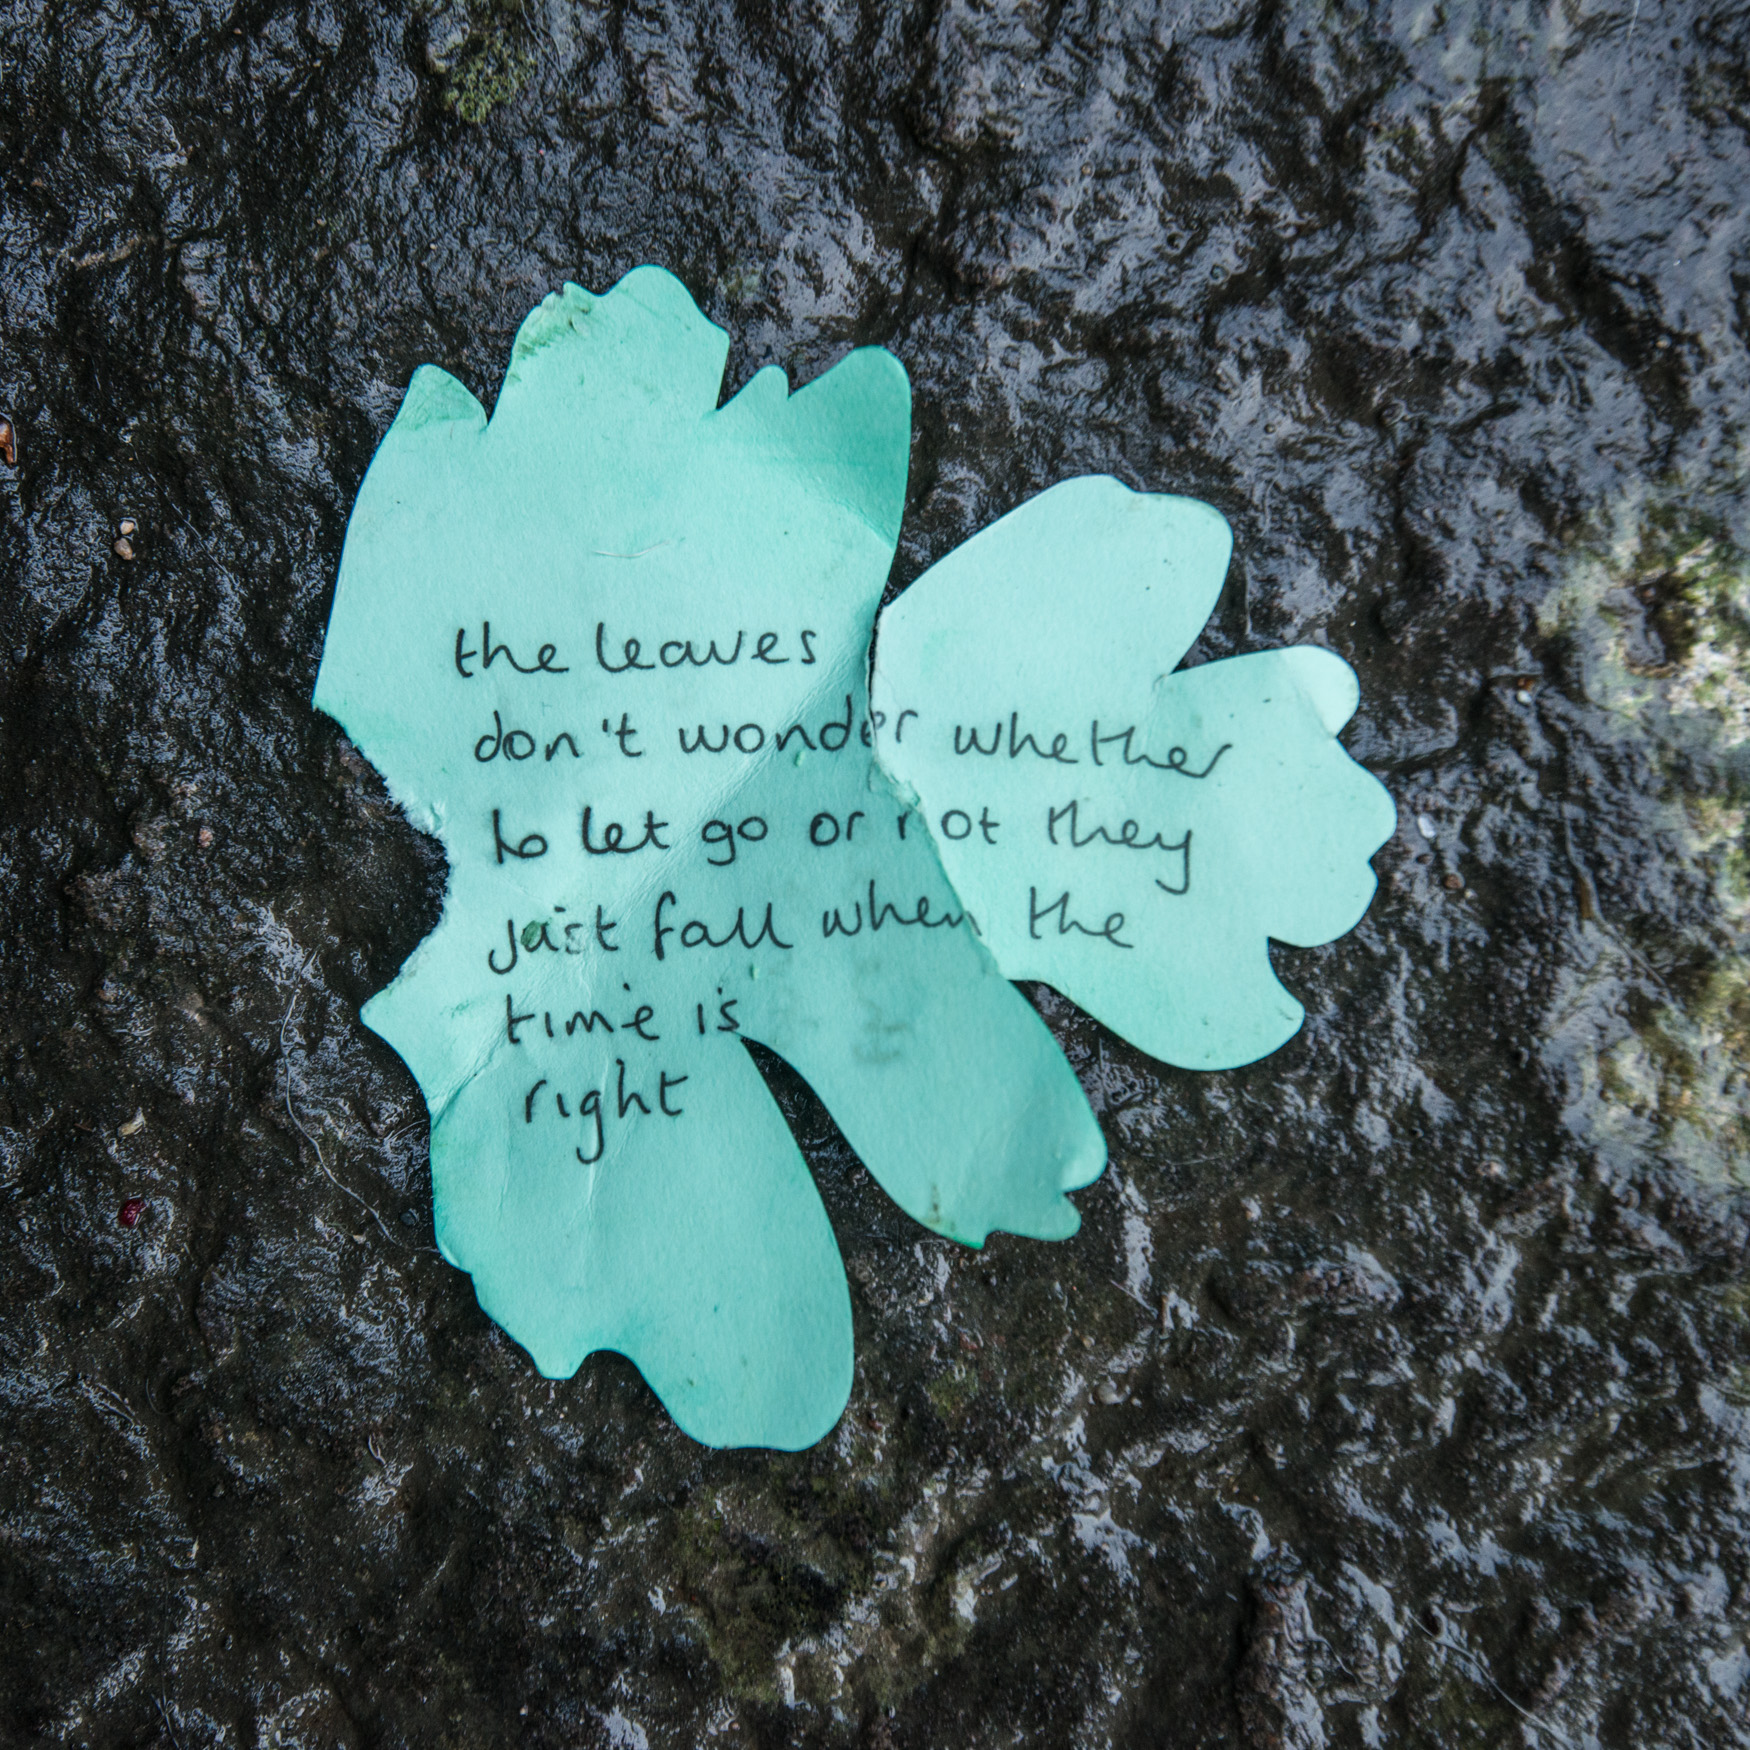 the leaves
don't wonder whether
to let go or not they
just fall when the
time is
right